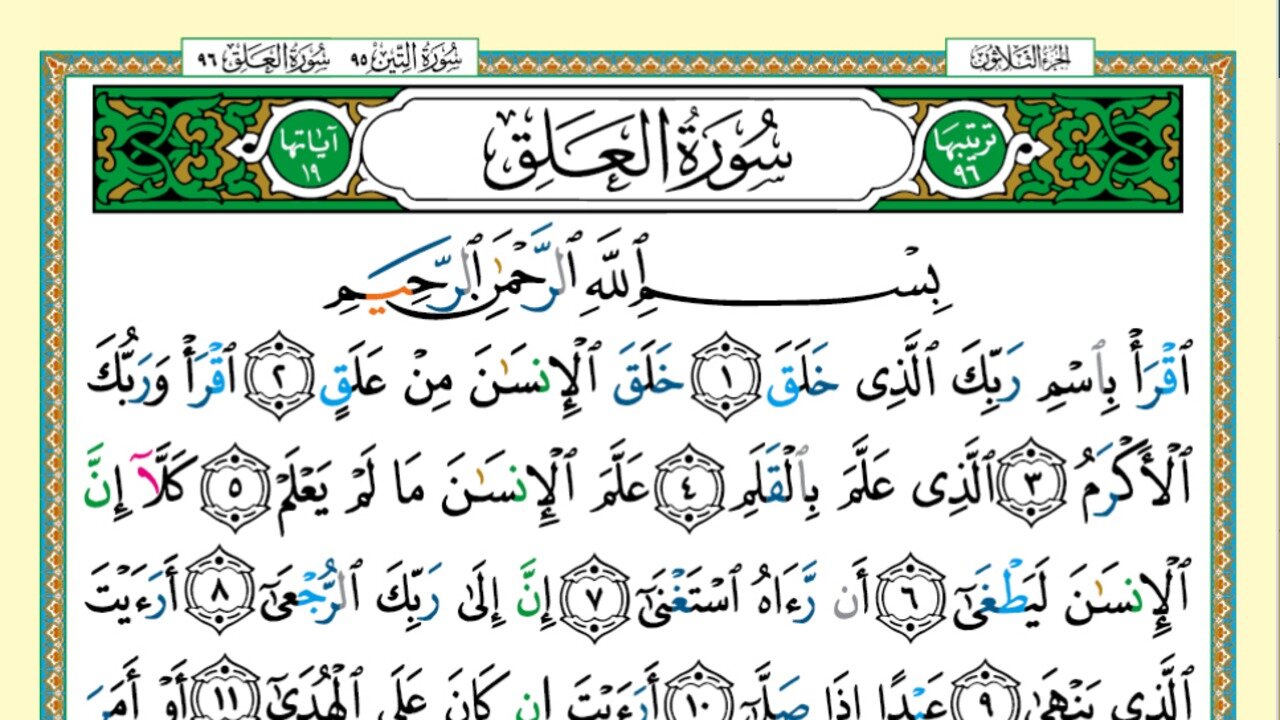 الجزء الثلاثون سورة التين ٩٥ سورة العلق ٩٦
ترتيبها ٩٦ سُورَةُ العَلَقِ آياتها ١٩
بِسْمِ ٱللَّهِ ٱلرَّحْمَٰنِ ٱلرَّحِيمِ
ٱقْرَأْ بِٱسْمِ رَبِّكَ ٱلَّذِى خَلَقَ ١ خَلَقَ ٱلْإِنسَٰنَ مِنْ عَلَقٍ ٢ ٱقْرَأْ وَرَبُّكَ
ٱلْأَكْرَمُ ٣ ٱلَّذِى عَلَّمَ بِٱلْقَلَمِ ٤ عَلَّمَ ٱلْإِنسَٰنَ مَا لَمْ يَعْلَمْ ٥ كَلَّآ إِنَّ
ٱلْإِنسَٰنَ لَيَطْغَىٰٓ ٦ أَن رَّءَاهُ ٱسْتَغْنَىٰٓ ٧ إِنَّ إِلَىٰ رَبِّكَ ٱلرُّجْعَىٰٓ ٨ أَرَءَيْتَ
ٱلَّذِى يَنْهَىٰ ٩ عَبْدًا إِذَا صَلَّىٰٓ ١٠ أَرَءَيْتَ إِن كَانَ عَلَى ٱلْهُدَىٰٓ ١١ أَوْ أَمَرَ